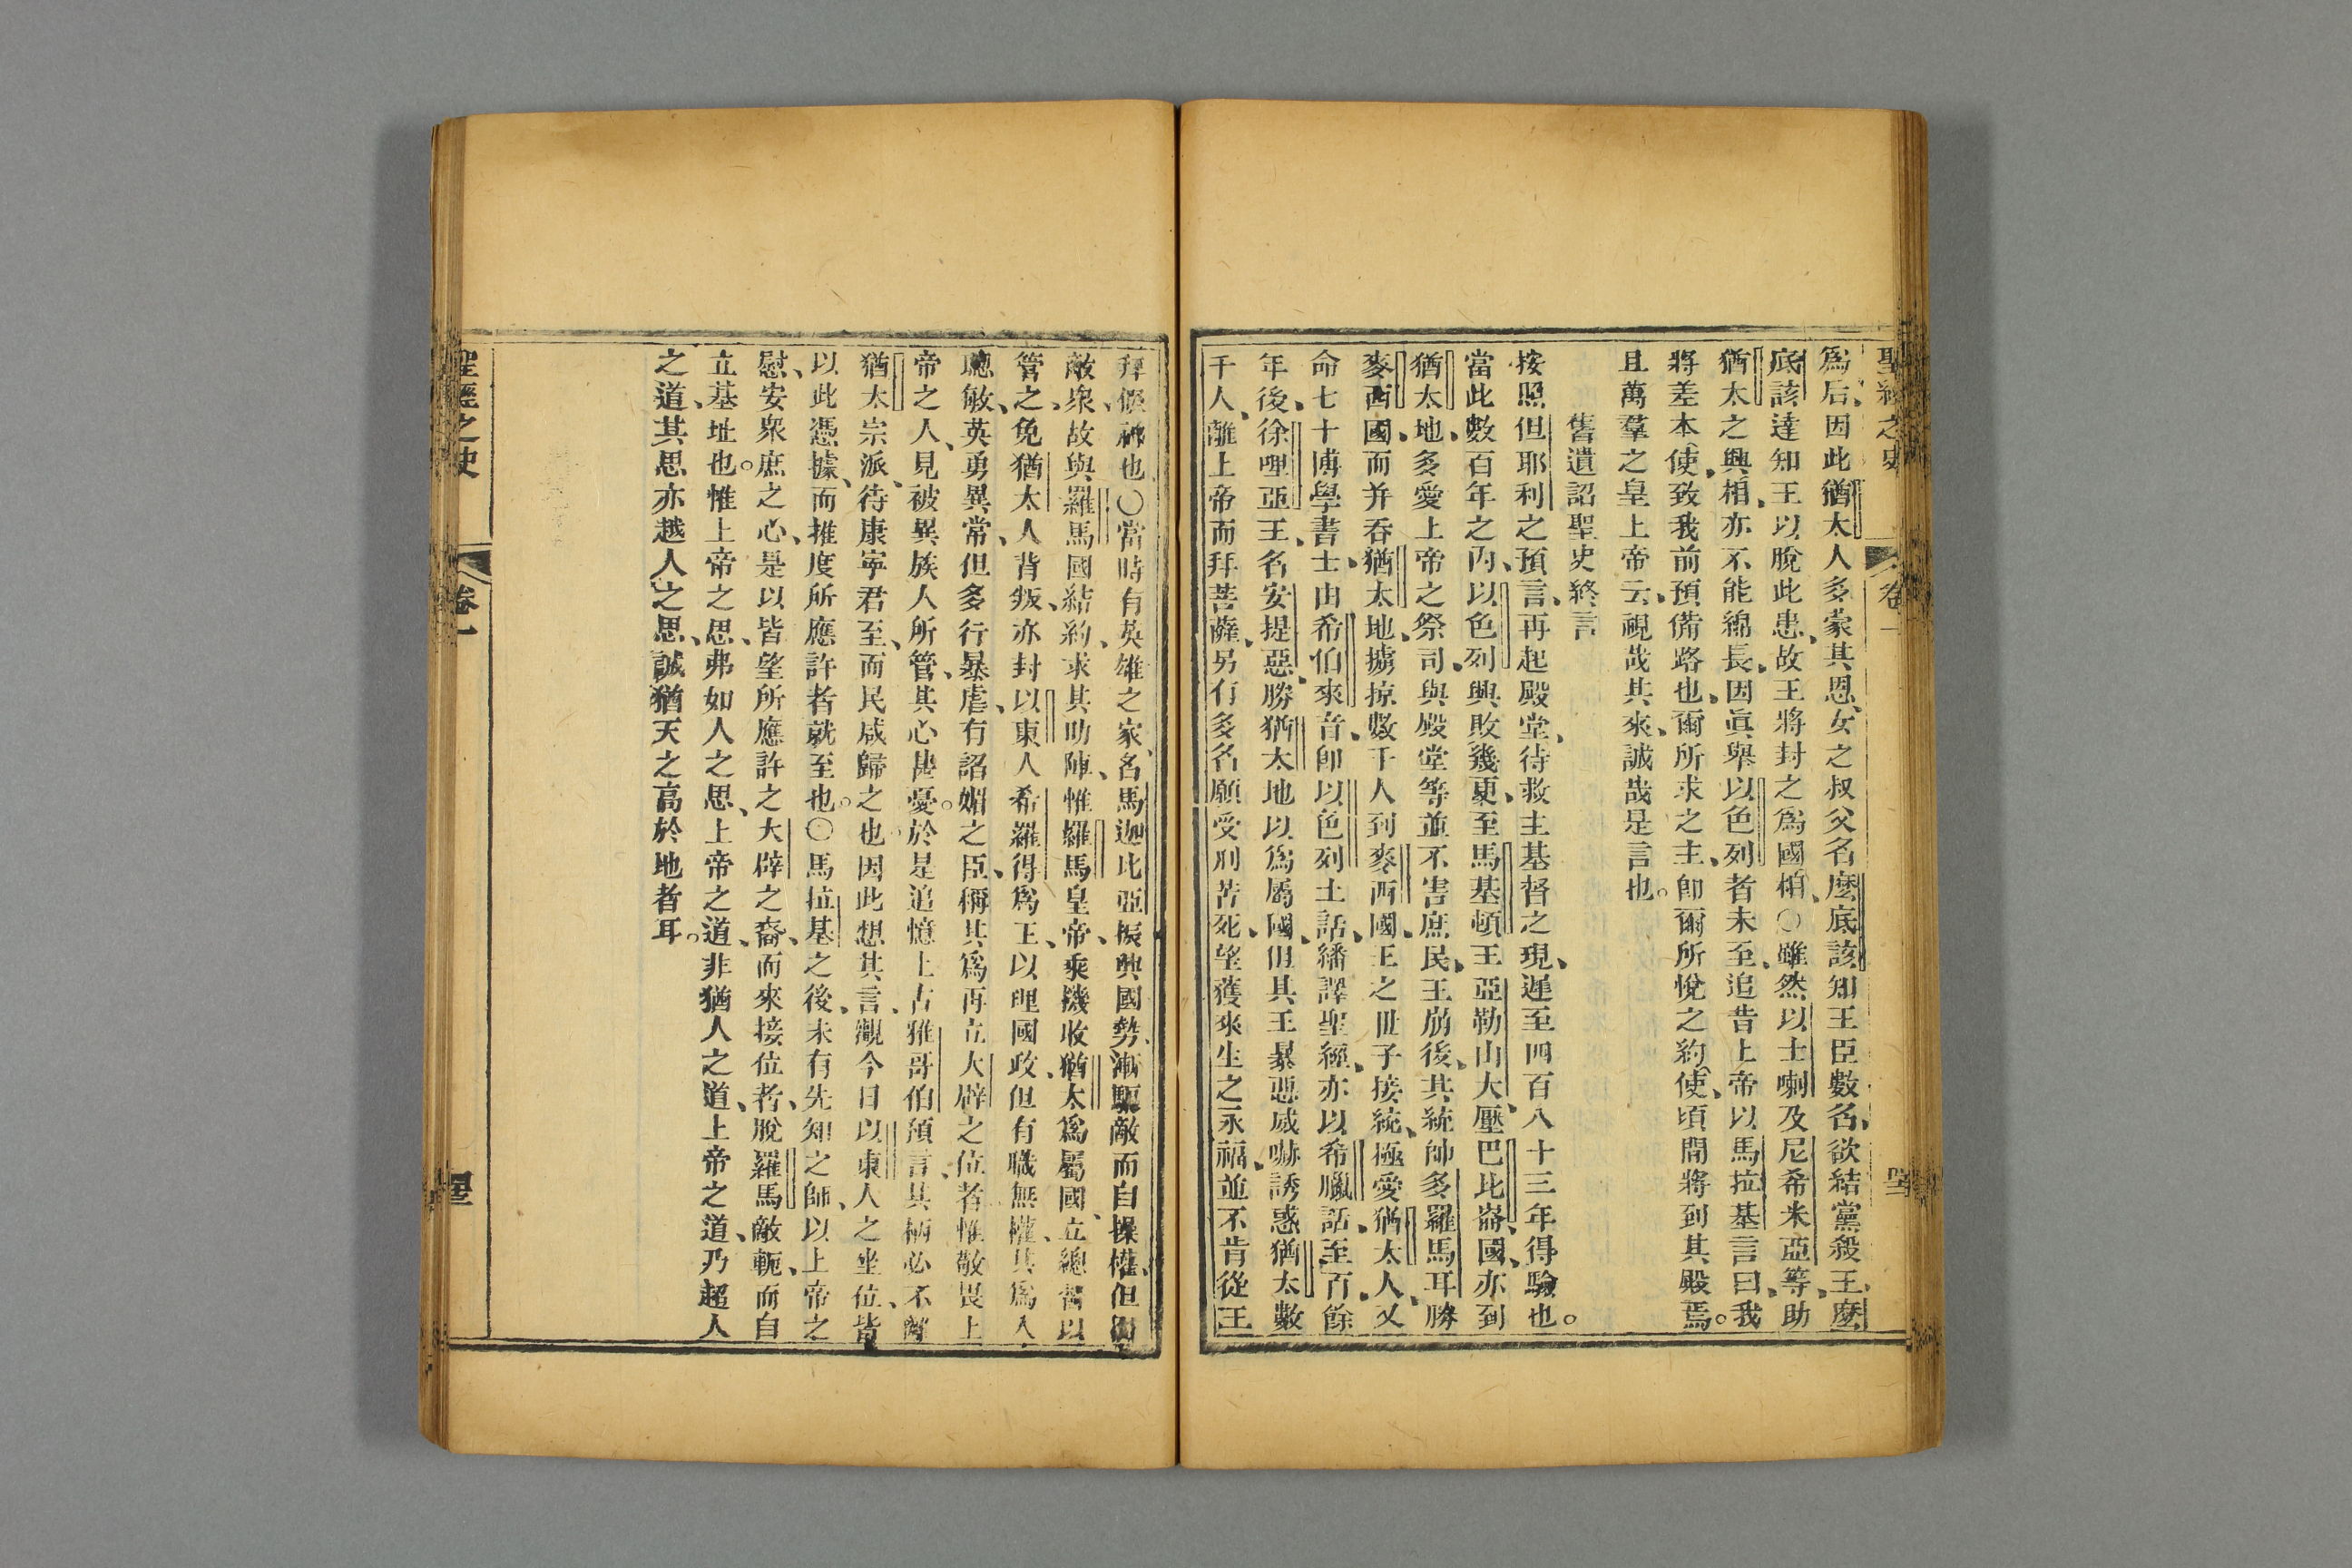 聖經之史 卷一
爲后、因此猶太人多蒙其恩、女之叔父名麼底該、知王臣數名、欲結黨殺王、麼
底該達知王以脫此患、故王將封之爲國相、〇雖然以士喇及尼希米亞等助
猶太之興、相亦不能綿長、因眞舉以色列者未至、追昔上帝以馬拉基言曰、我
將差本使、致我前預備路也、爾所求之主、卽爾所悅之約使、頃間將到其殿焉。
且萬羣之皇上帝云、視哉其來、誠哉是言也。
舊遺詔聖史終言
按照但耶利之預言、再起殿堂、待救主基督之現、遲至四百八十三年得驗也。
當此數百年之內、以色列興敗幾更、至馬基頓王亞勒山大、壓巴比崙國、亦到
猶太地、多愛上帝之祭司、與殿堂等並不害庶民、王崩後、其統帥多羅馬耳勝
麥西國、而并吞猶太地、擄掠數千人到麥西國、王之世子接統、極愛猶太人、又
命七十博學書士、由希伯來音、卽以色列土話、繙譯聖經、亦以希臘話、至百餘
年後、徐哩亞王、名安提惡、勝猶太地以爲屬國、但其王暴惡威嚇誘惑猶太數
千人、離上帝而拜菩薩、另有多名願受刑苦死、望獲來生之永福、並不肯從王
拜假神也、〇當時有英雄之家、名馬迦比亞、振興國勢、漸驅敵而自操權、但
敵衆、故與羅馬國結約、求其助陣、惟羅馬皇帝、乘機收猶太爲屬國、立總督以
管之、免猶太人背叛、亦封以東人希羅得爲王、以理國政、但有職無權、其爲人
聰敏、英勇異常、但多行暴虐、有諂媚之臣、稱其爲再立大辟之位者、惟敬畏上
帝之人、見被異族人所管、其心甚憂。於是追憶上古雅哥伯預言、其柄必不離
猶太宗派、待康寧君至、而民咸歸之也、因此想其言、觀今日以東人之坐位、皆
以此憑據、而推度所應許者就至也。〇馬拉基之後、未有先知之師、以上帝之
慰、安衆庶之心、是以皆望所應許之大辟之裔、而來接位者、脫羅馬敵軛、而自
立基址也。惟上帝之思、弗如人之思、上帝之道、非猶人之道、上帝之道、乃超人
之道、其思亦越人之思、誠猶天之高於地者耳。
聖經之史 卷一